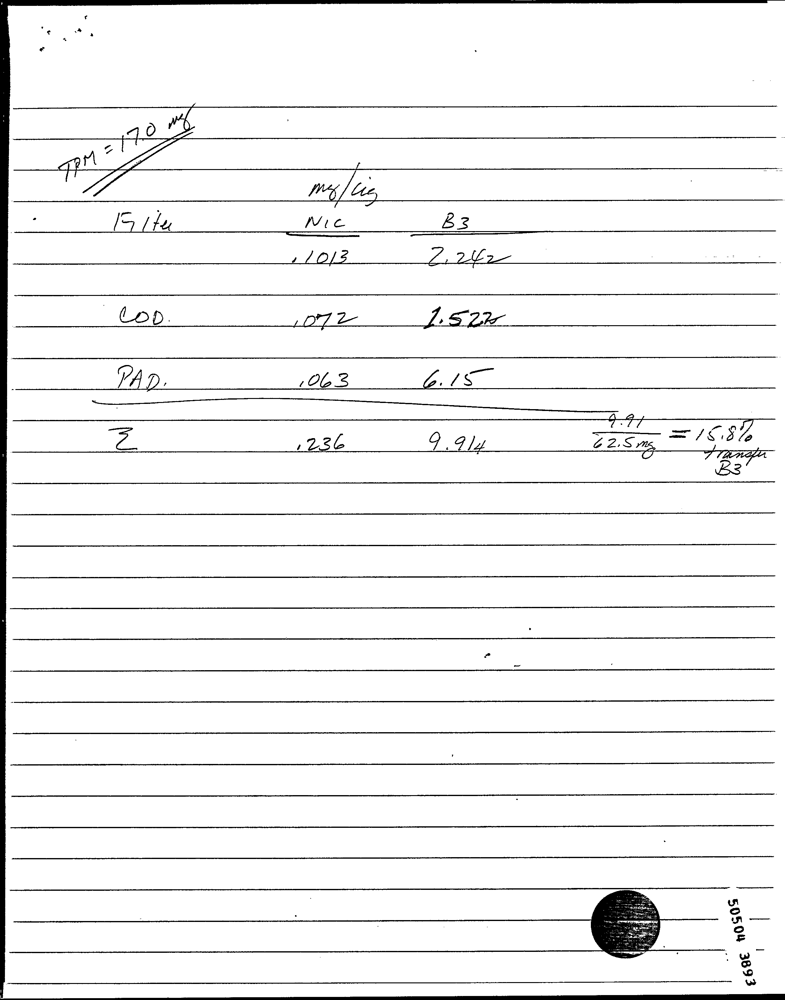 TPM = 17.0 mg
mg/cig
Filter NIC B3
.1013 2.242
COD. .072 1.522
PAD. .063 6.15
Σ .236 9.914 9.91 / 62.5 mg = 15.8% transfer B3
50504 3893